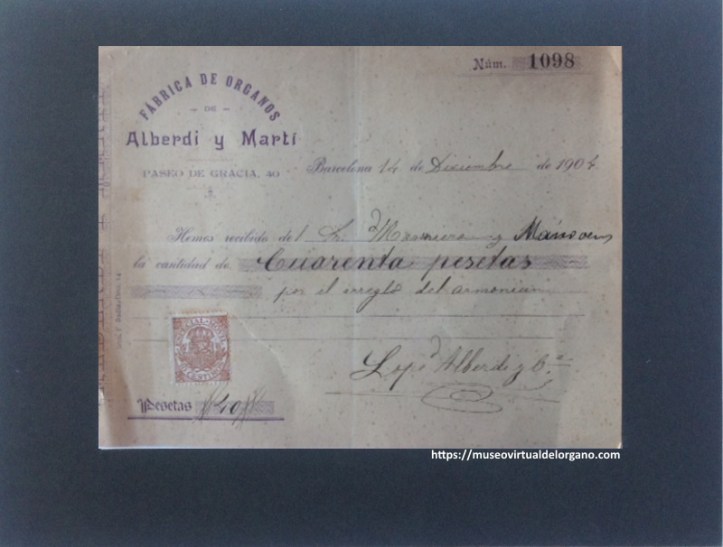 Núm. 1098
FÁBRICA DE ORGANOS
DE
Alberdi y Martí
PASEO DE GRACIA, 40
Barcelona 14 de Diciembre de 1904
Hemos recibido del Sr.
la cantidad de Cuarenta pesetas
por el arreglo del armonium
Lope Alberdi y Cª
Pesetas 40
https://museovirtualdelorgano.com